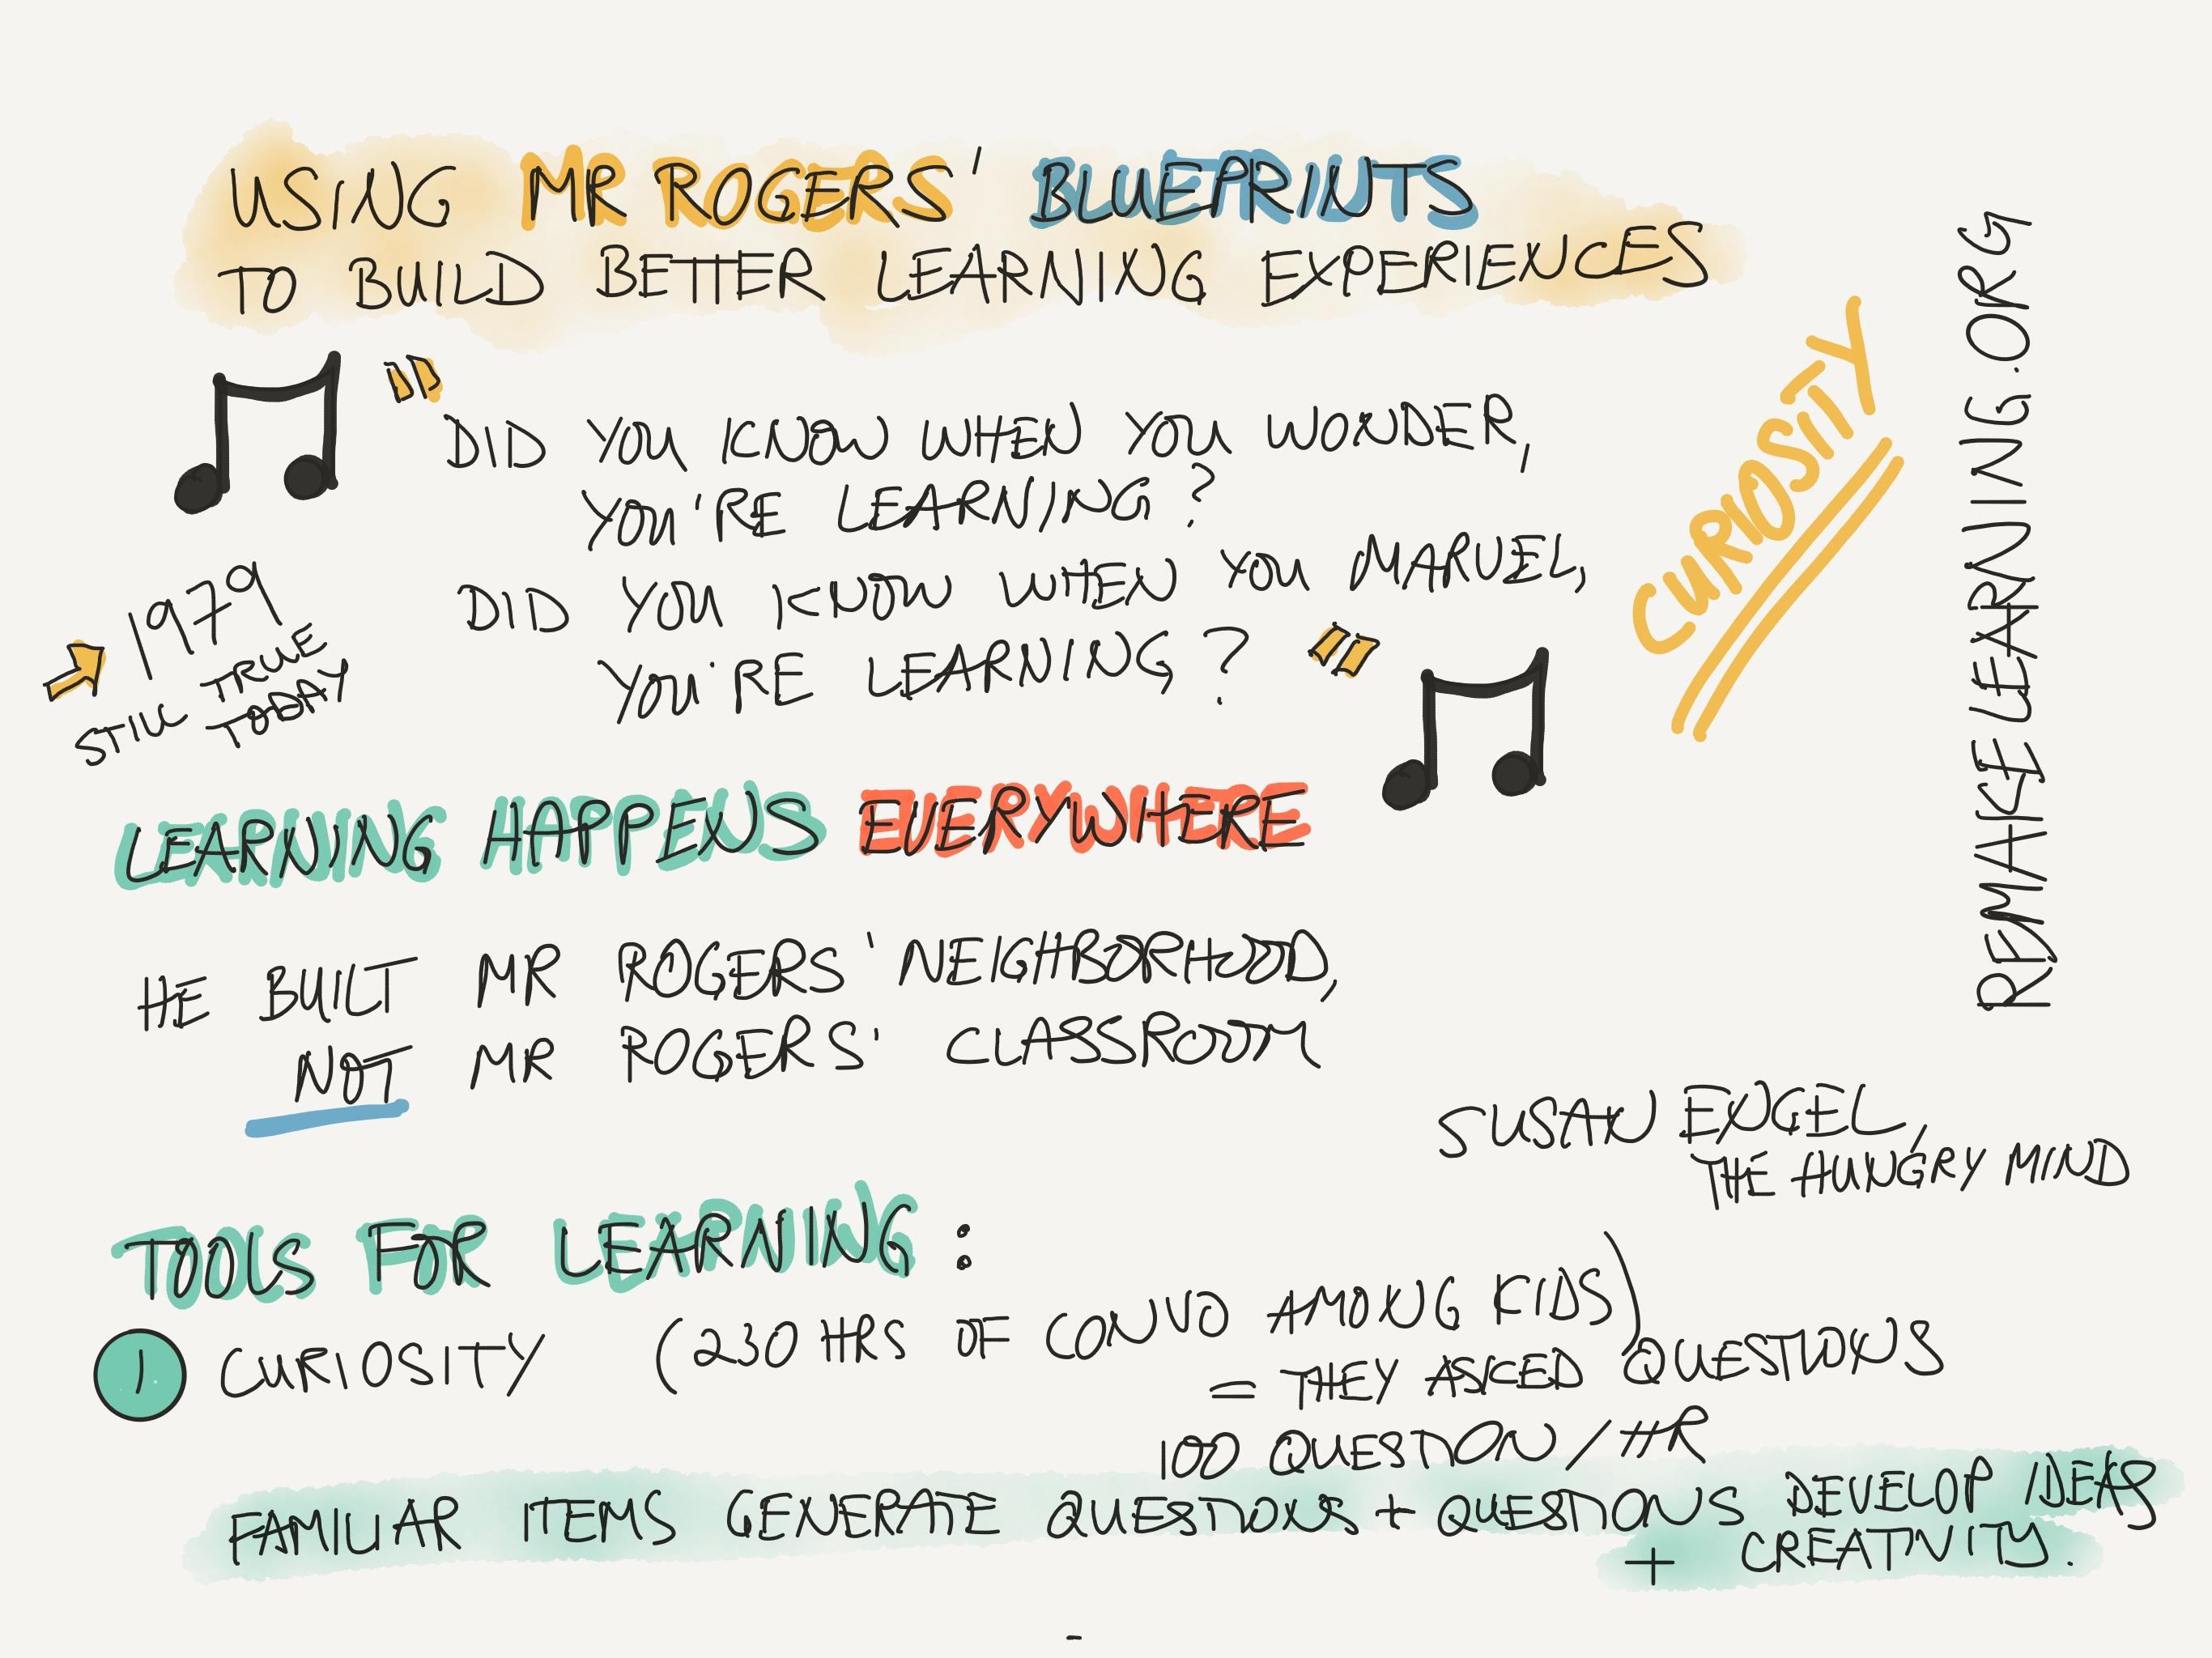 USING MR ROGERS' BLUEPRINTS
TO BUILD BETTER LEARNING EXPERIENCES
"DID YOU KNOW WHEN YOU WONDER,
YOU'RE LEARNING?
DID YOU KNOW WHEN YOU MARVEL,
YOU'RE LEARNING?"
1979
STILL TRUE
TODAY
CURIOSITY
REMAKELEARNING.ORG
LEARNING HAPPENS EVERYWHERE
HE BUILT MR ROGERS' NEIGHBORHOOD,
NOT MR ROGERS' CLASSROOM
SUSAN ENGEL,
THE HUNGRY MIND
TOOLS FOR LEARNING:
1 CURIOSITY (230 HRS OF CONVO AMONG KIDS)
= THEY ASKED QUESTIONS
100 QUESTION/HR
FAMILIAR ITEMS GENERATE QUESTIONS + QUESTIONS DEVELOP IDEAS
+ CREATIVITY.